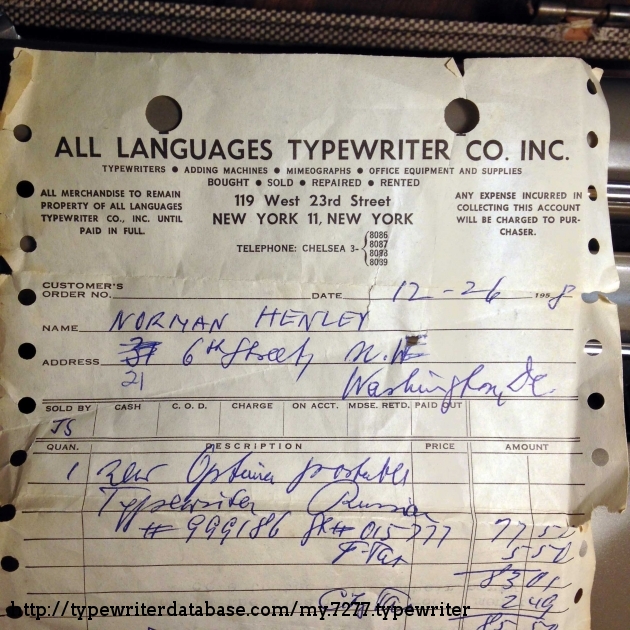 ALL LANGUAGES TYPEWRITER CO. INC.
TYPEWRITERS ● ADDING MACHINES ● MIMEOGRAPHS ● OFFICE EQUIPMENT AND SUPPLIES
BOUGHT ● SOLD ● REPAIRED ● RENTED
ALL MERCHANDISE TO REMAIN
PROPERTY OF ALL LANGUAGES
TYPEWRITER CO., INC. UNTIL
PAID IN FULL.
119 West 23rd Street
NEW YORK 11, NEW YORK
TELEPHONE: CHELSEA 3-
8086
8087
8088
8089
ANY EXPENSE INCURRED IN
COLLECTING THIS ACCOUNT
WILL BE CHARGED TO PUR-
CHASER.
CUSTOMER'S
ORDER NO. DATE 12-26 1958
NAME NORMAN HENLEY
ADDRESS 6th Street, N.W
21 Washington, DC.
SOLD BY CASH C. O. D. CHARGE ON ACCT. MDSE. RETD. PAID OUT
JS
QUAN. DESCRIPTION PRICE AMOUNT
1 new Optima portable
Typewriter Russian
# 999186 # 015777 77 50
F-Tax 5 50
83 01
2 49
85 50
http://typewriterdatabase.com/my.7277.typewriter